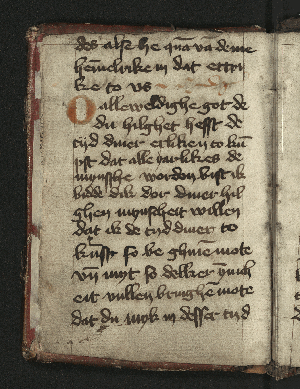 des alse he quā vā deme
hēmelrike in dat ertri
ke to vs
O alleweldighe got de
du hilghet hefft de
tijd diner erliken to kū
pst dat alle
mynsche worden bist ik
bidde dik dor diner hil
ghen mynscheit willen
dat ik de tijd diner to
kūpst so be mote
vn̄ myt so
eit vullen bringhē mote
dat du myk in desser tijd